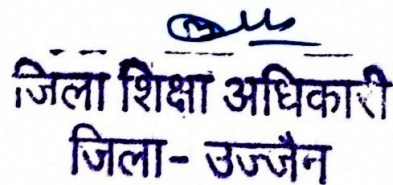 जिला शिक्षा अधिकारी
जिला - उज्जैन